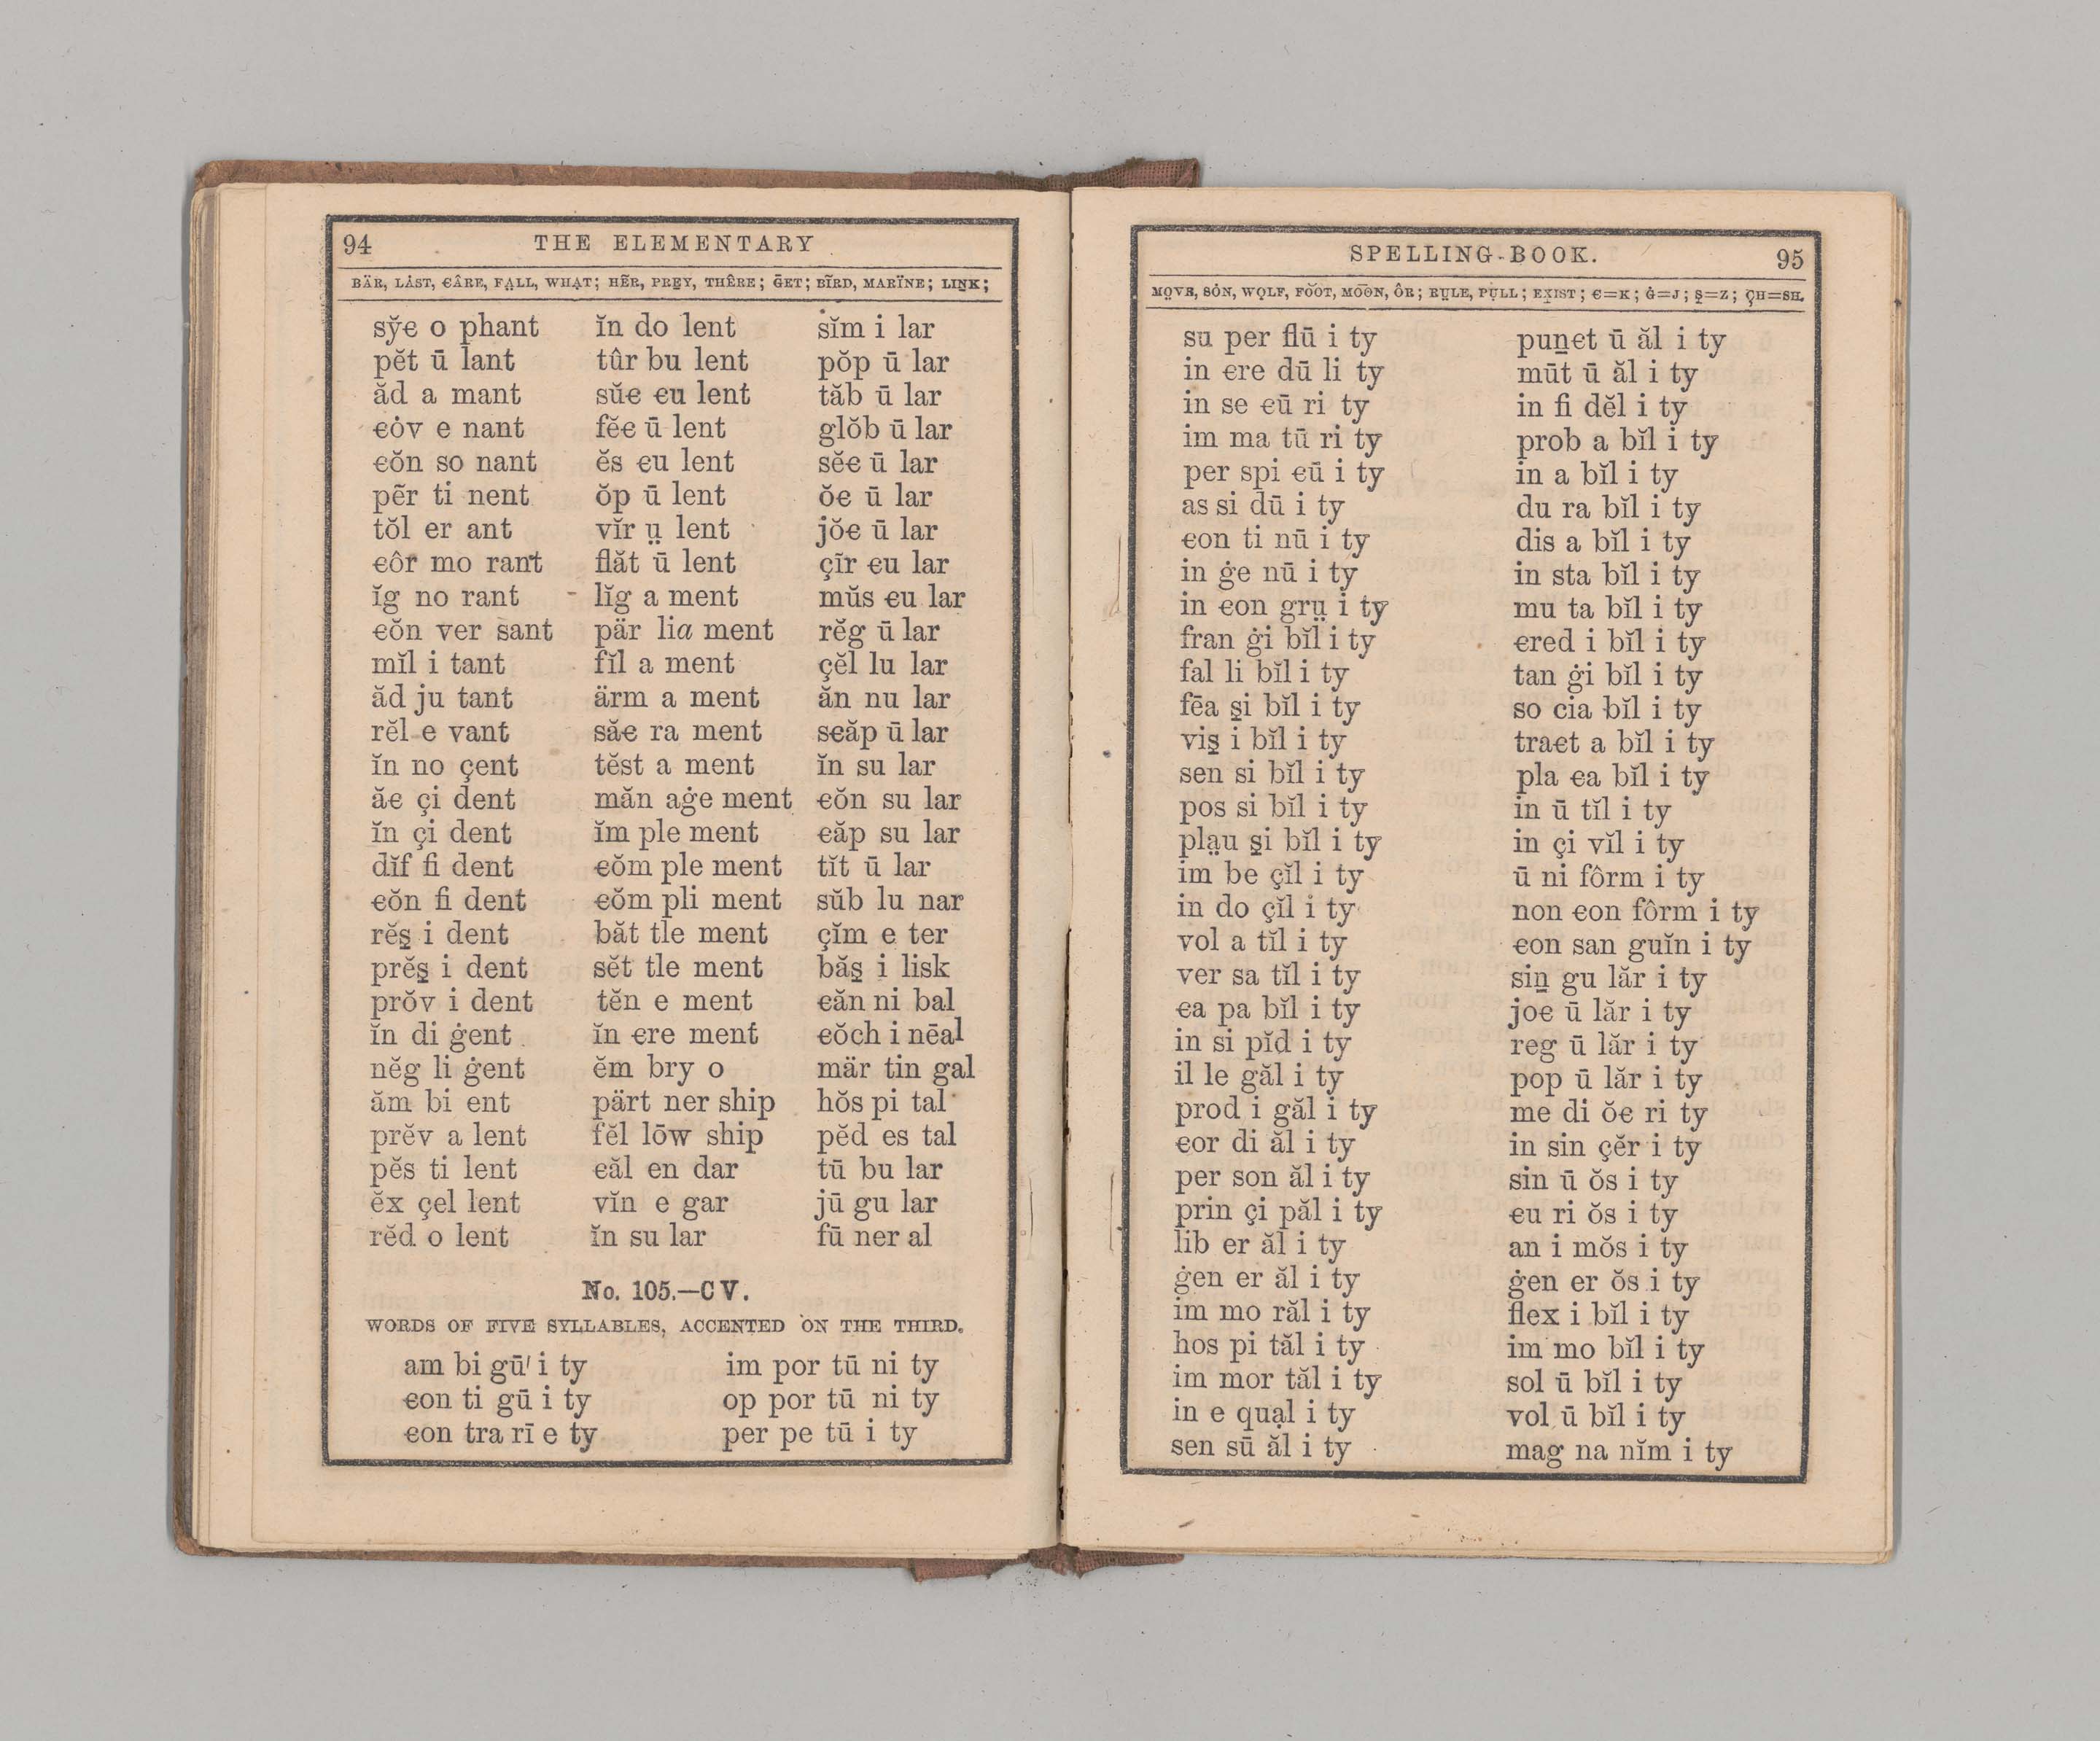 94
THE ELEMENTARY
BÄR, LȦST, ꞒÂRE, FẠLL, WHẠT; HẼR, PREY, THÊRE; ḠET; BĨRD, MARÏNE; LIṈK;
sy̆ꞓ o phant
pĕt ū lant
ăd a mant
ꞓȯv e nant
ꞓŏn so nant
pẽr ti nent
tŏl er ant
ꞓôr mo rant
ĭg no rant
ꞓŏn ver sant
mĭl i tant
ăd ju tant
rĕl e vant
ĭn no çent
ăꞓ çi dent
ĭn çi dent
dĭf fi dent
ꞓŏn fi dent
rĕs̱ i dent
prĕs̱ i dent
prŏv i dent
ĭn di ġent
nĕg li ġent
ăm bi ent
prĕv a lent
pĕs ti lent
ĕx çel lent
rĕd o lent
ĭn do lent
tûr bu lent
sŭꞓ ꞓu lent
fĕꞓ ū lent
ĕs ꞓu lent
ŏp ū lent
vĭr ṳ lent
flăt ū lent
lĭg a ment
pär lia ment
fĭl a ment
ärm a ment
săꞓ ra ment
tĕst a ment
măn aġe ment
ĭm ple ment
ꞓŏm ple ment
ꞓŏm pli ment
băt tle ment
sĕt tle ment
tĕn e ment
ĭn ꞓre ment
ĕm bry o
pärt ner ship
fĕl lōw ship
ꞓăl en dar
vĭn e gar
ĭn su lar
sĭm i lar
pŏp ū lar
tăb ū lar
glŏb ū lar
sĕꞓ ū lar
ŏꞓ ū lar
jŏꞓ ū lar
çĩr ꞓu lar
mŭs ꞓu lar
rĕg ū lar
çĕl lu lar
ăn nu lar
sꞓăp ū lar
ĭn su lar
ꞓŏn su lar
ꞓăp su lar
tĭt ū lar
sŭb lu nar
çĭm e ter
băs̱ i lisk
ꞓăn ni bal
ꞓŏch i nēal
mär tin gal
hŏs pi tal
pĕd es tal
tū bu lar
jū gu lar
fū ner al
No. 105.—CV.
WORDS OF FIVE SYLLABLES, ACCENTED ON THE THIRD.
am bi gū′ i ty
ꞓon ti gū i ty
ꞓon tra rī e ty
im por tū ni ty
op por tū ni ty
per pe tū i ty
SPELLING-BOOK.
95
MO̤VE, SȮN, WO̤LF, FO͝OT, MO͞ON, ÔR; RṲLE, PṲLL; EX̱IST; Ꞓ=K; Ġ=J; S̱=Z; ÇH=SH.
su per flū i ty
in ꞓre dū li ty
in se ꞓū ri ty
im ma tū ri ty
per spi ꞓū i ty
as si dū i ty
ꞓon ti nū i ty
in ġe nū i ty
in ꞓon grṳ i ty
fran ġi bĭl i ty
fal li bĭl i ty
fēa s̱i bĭl i ty
vis̱ i bĭl i ty
sen si bĭl i ty
pos si bĭl i ty
pla̤u s̱i bĭl i ty
im be çĭl i ty
in do çĭl i ty
vol a tĭl i ty
ver sa tĭl i ty
ꞓa pa bĭl i ty
in si pĭd i ty
il le găl i ty
prod i găl i ty
ꞓor di ăl i ty
per son ăl i ty
prin çi păl i ty
lib er ăl i ty
ġen er ăl i ty
im mo răl i ty
hos pi tăl i ty
im mor tăl i ty
in e quạl i ty
sen sū ăl i ty
puṉꞓt ū ăl i ty
mūt ū ăl i ty
in fi dĕl i ty
prob a bĭl i ty
in a bĭl i ty
du ra bĭl i ty
dis a bĭl i ty
in sta bĭl i ty
mu ta bĭl i ty
ꞓred i bĭl i ty
tan ġi bĭl i ty
so cia bĭl i ty
traꞓt a bĭl i ty
pla ꞓa bĭl i ty
in ū tĭl i ty
in çi vĭl i ty
ū ni fôrm i ty
non ꞓon fôrm i ty
ꞓon san guĭn i ty
siṉ gu lăr i ty
joꞓ ū lăr i ty
reg ū lăr i ty
pop ū lăr i ty
me di ŏꞓ ri ty
in sin çĕr i ty
sin ū ŏs i ty
ꞓu ri ŏs i ty
an i mŏs i ty
ġen er ŏs i ty
flex i bĭl i ty
im mo bĭl i ty
sol ū bĭl i ty
vol ū bĭl i ty
mag na nĭm i ty